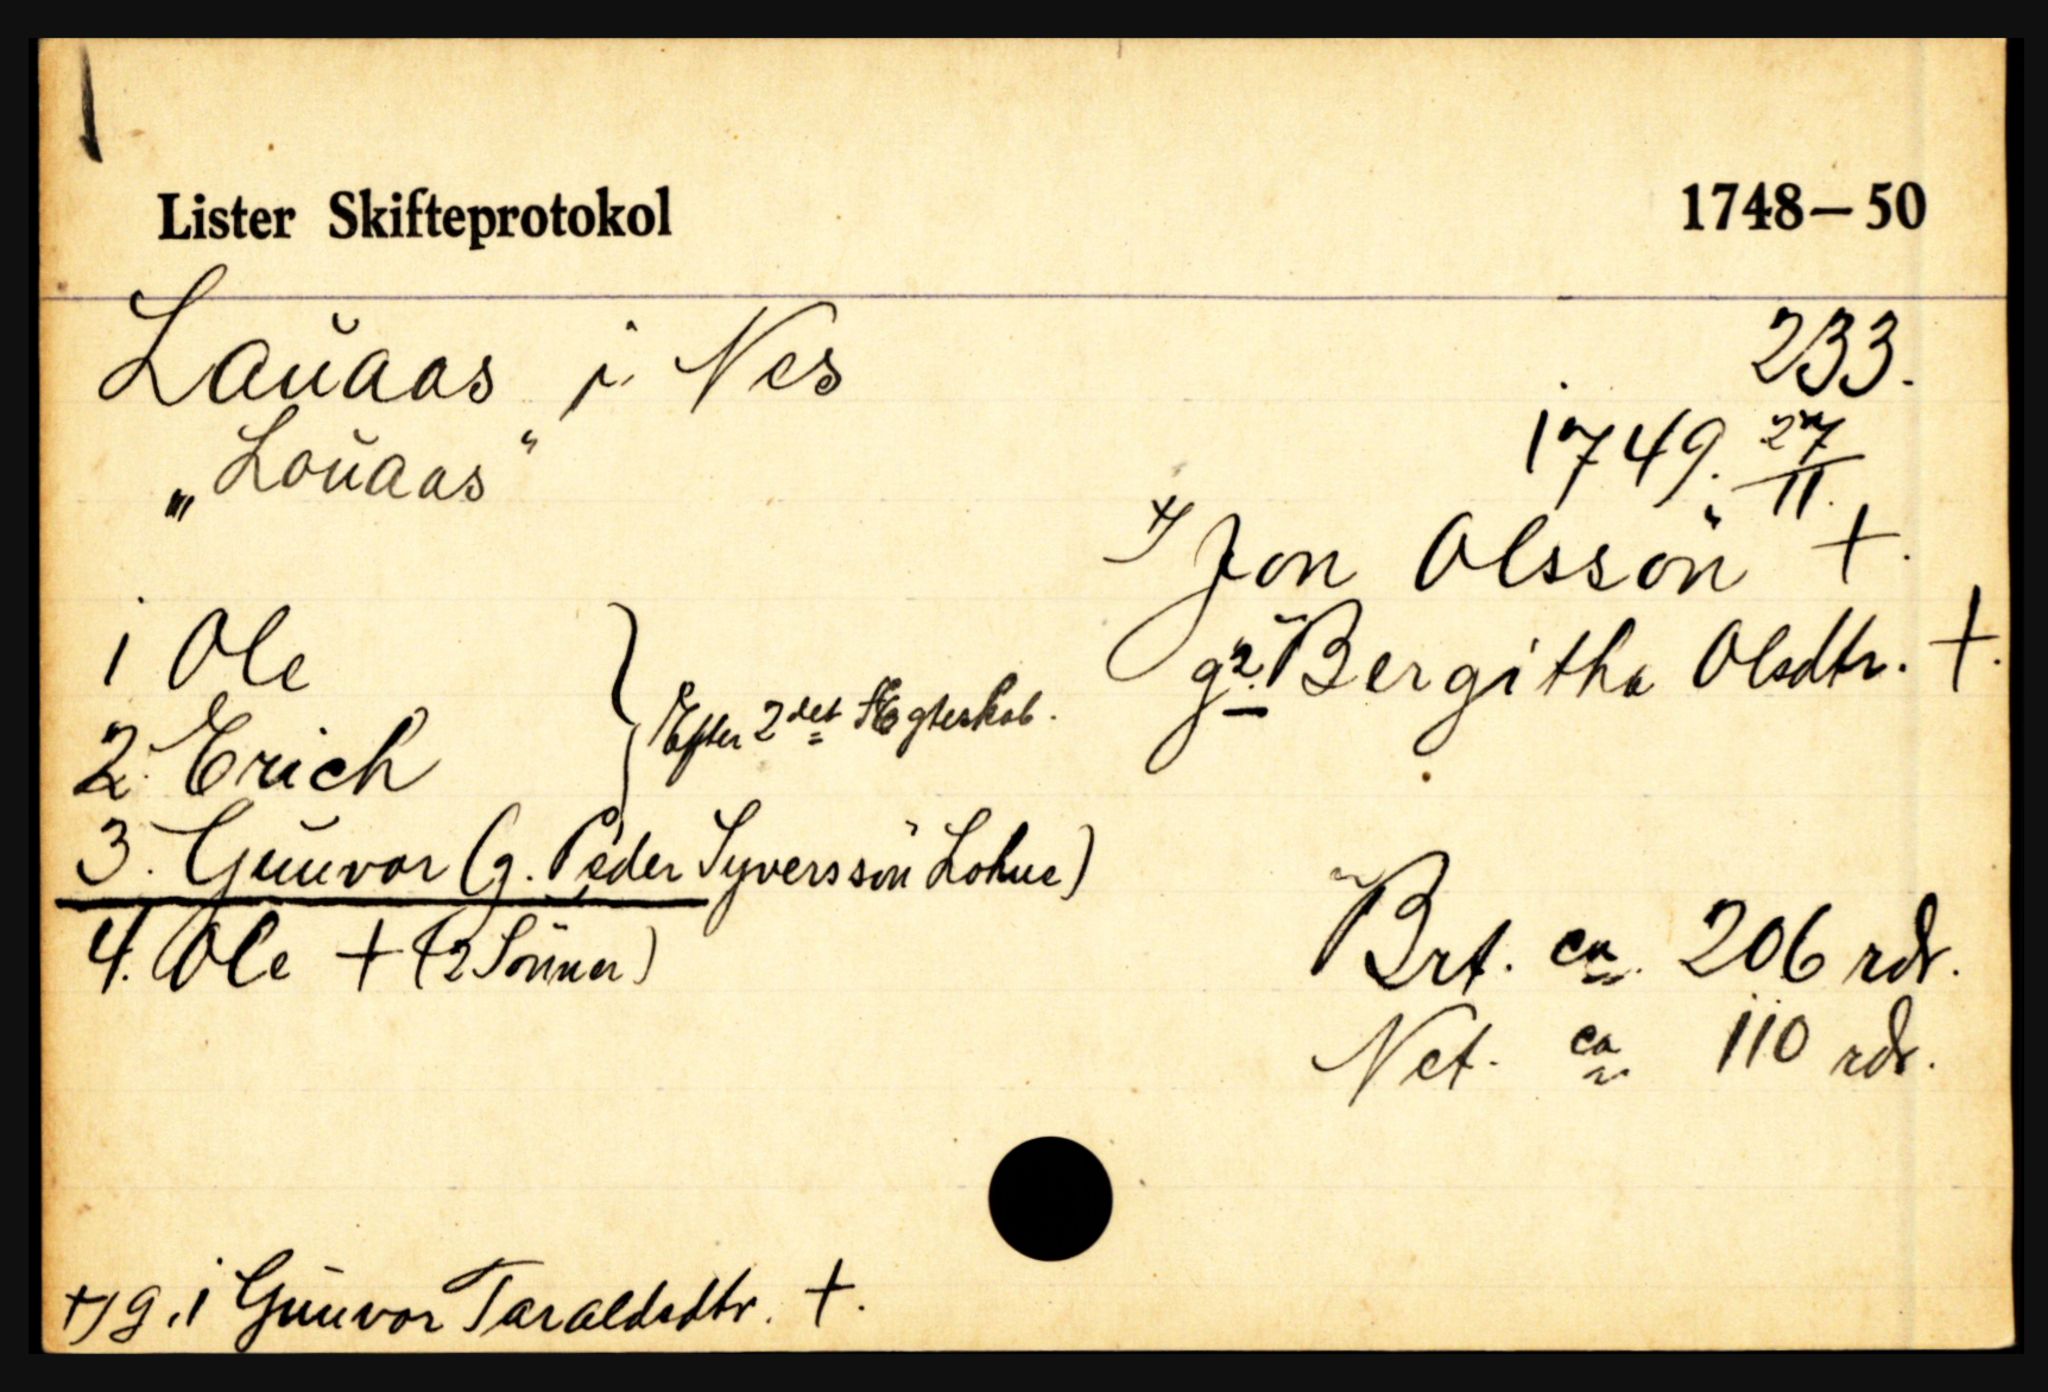 Lister Skifteprotokol 1748—50
Lauaas i Nes 233.
„Louaas“ 1749. 27/11.
+) Jon Olssön +.
g2. Bergitha Olsdtr. +.
1 Ole
2. Erich } Efter 2det Ægteskab.
3. Gunvor (g. Peder Syverssön Lohne)
4. Ole + (2 Sönner)
Brt. ca. 206 rdr.
Net. ca 110 rdr.
+) g. 1 Gunvor Taraldsdtr. +.